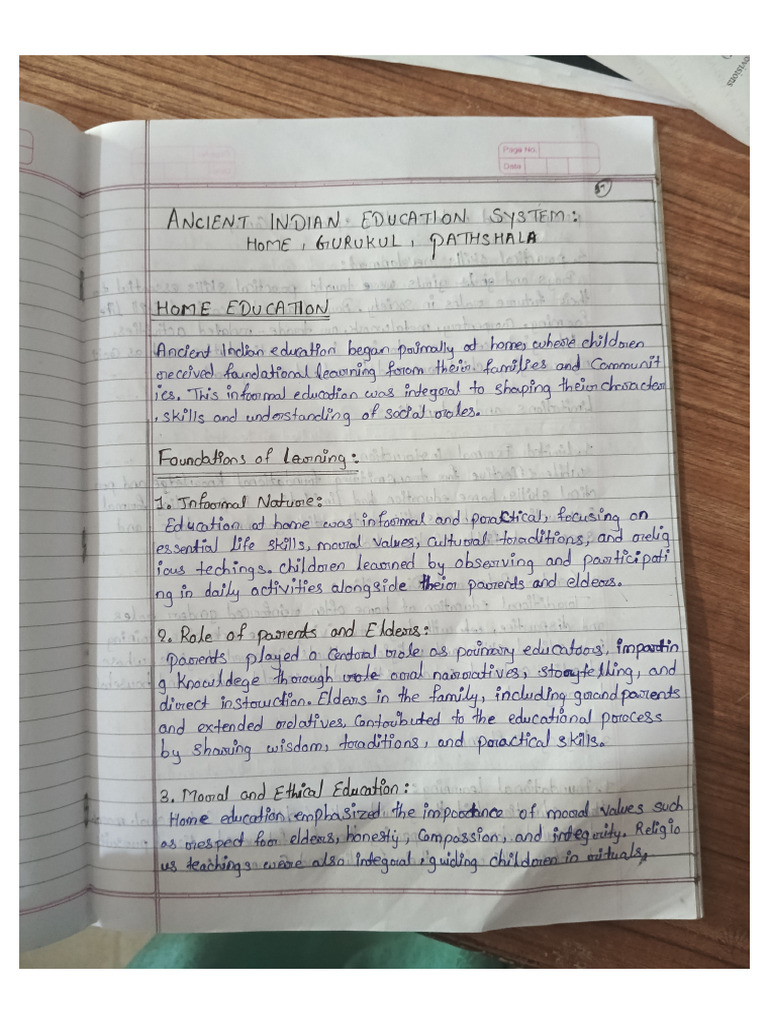 Page No.
Date
ANCIENT INDIAN EDUCATION SYSTEM:
HOME, GURUKUL, PATHSHALA
HOME EDUCATION
Ancient Indian education began primally at home, where children
received foundational learning from their families and Communit
ies. This informal education was integral to shaping their character
, skills and understanding of social roles.
Foundations of Learning:
1. Informal Nature:
Education at home was informal and practical, focusing on
essential life skills, moral values, cultural traditions, and relig
ious techings. children learned by observing and participati
ng in daily activities alongside their parents and elders.
2. Role of parents and Elders:
Parents played a Central role as primary educators, impartin
g knowldege thorough role oral narratives, storytelling, and
direct instruction. Elders in the family, including grandparents
and extended relatives, Contributed to the educational process
by sharing wisdom, traditions, and practical skills.
3. Moral and Ethical Education:
Home education emphasized the importance of moral values such
as respect for elders, honesty, Compassion, and integrity. Religio
us teachings were also integral, guiding children in rituals,